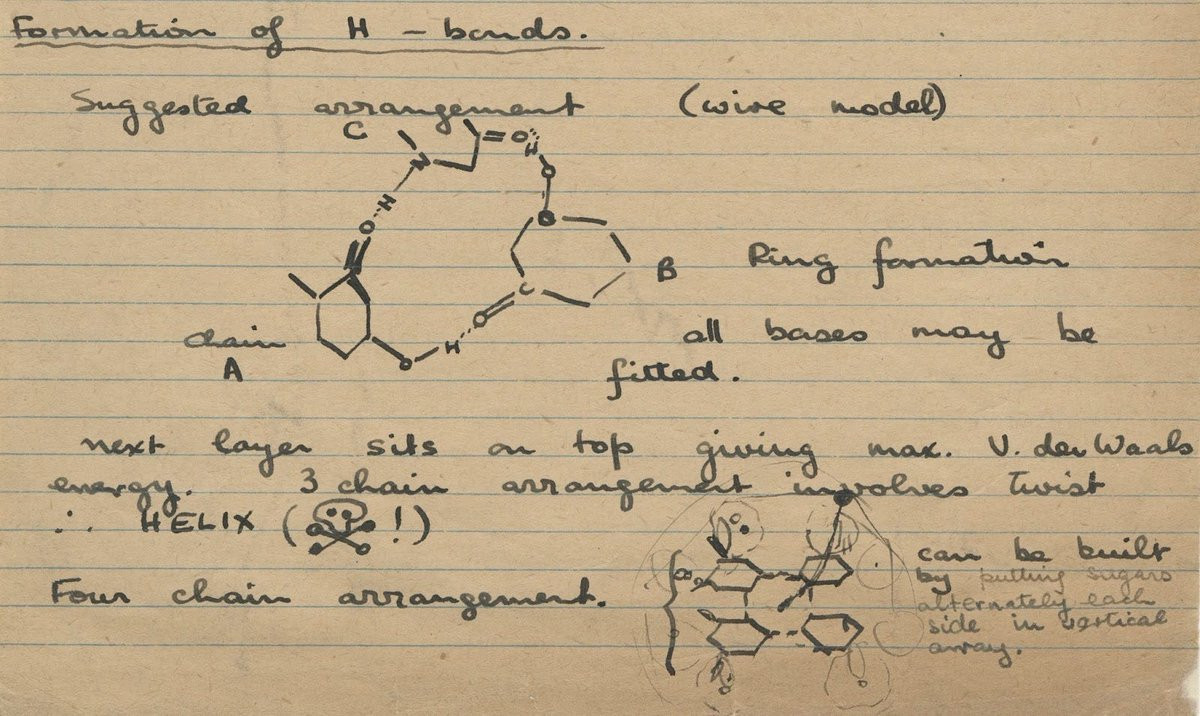 Formation of H - bonds.
Suggested arrangement (wire model)
C
N
= O
H
O
H
O
C
B
Ring formation
O
H
O
chain
A
all bases may be
fitted.
next layer sits on top giving max. V. der Waals
energy. 3 chain arrangement involves twist
∴ HELIX ( !)
Four chain arrangement.
can be built
by putting sugars
alternately each
side in vertical
array.